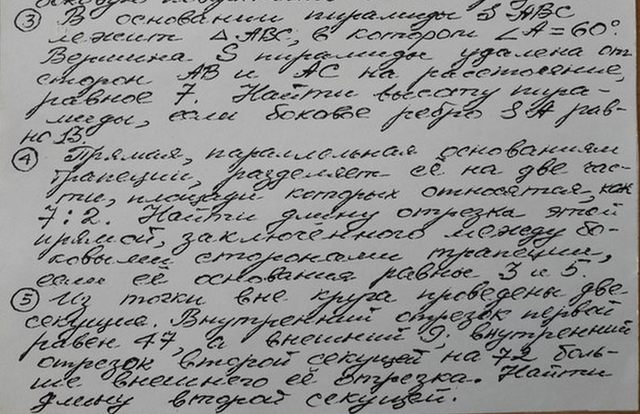 ③ В основании пирамиды SABC
лежит △ABC, в котором ∠A=60°.
Вершина S пирамиды удалена от
сторон AB и AC на расстояние,
равное 7. Найти высоту пира-
миды, если боковое ребро SA рав-
но 13
④ Прямая, параллельная основаниям
трапеции, разделяет её на две час-
ти, площади которых относятся, как
7:2. Найти длину отрезка этой
прямой, заключённого между бо-
ковыми сторонами трапеции,
если её основания равны 3 и 5.
⑤ Из точки вне круга проведены две
секущие. Внутренний отрезок первой
равен 47, а внешний 9; внутренний
отрезок второй секущей на 72 боль-
ше внешнего её отрезка. Найти
длину второй секущей.